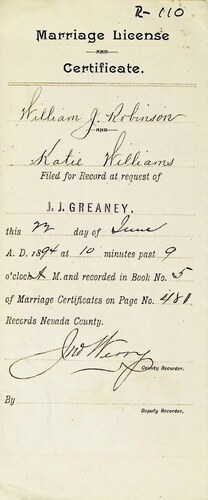 R-110
Marriage License
AND
Certificate.
William J. Robinson
AND
Katie Williams
Filed for Record at request of
J. J. GREANEY,
this 22 day of June
A. D. 1894 at 10 minutes past 9
o'clock A M. and recorded in Book No. 5
of Marriage Certificates on Page No. 481
Records Nevada County.
Jno Werry
County Recorder.
By
Deputy Recorder.